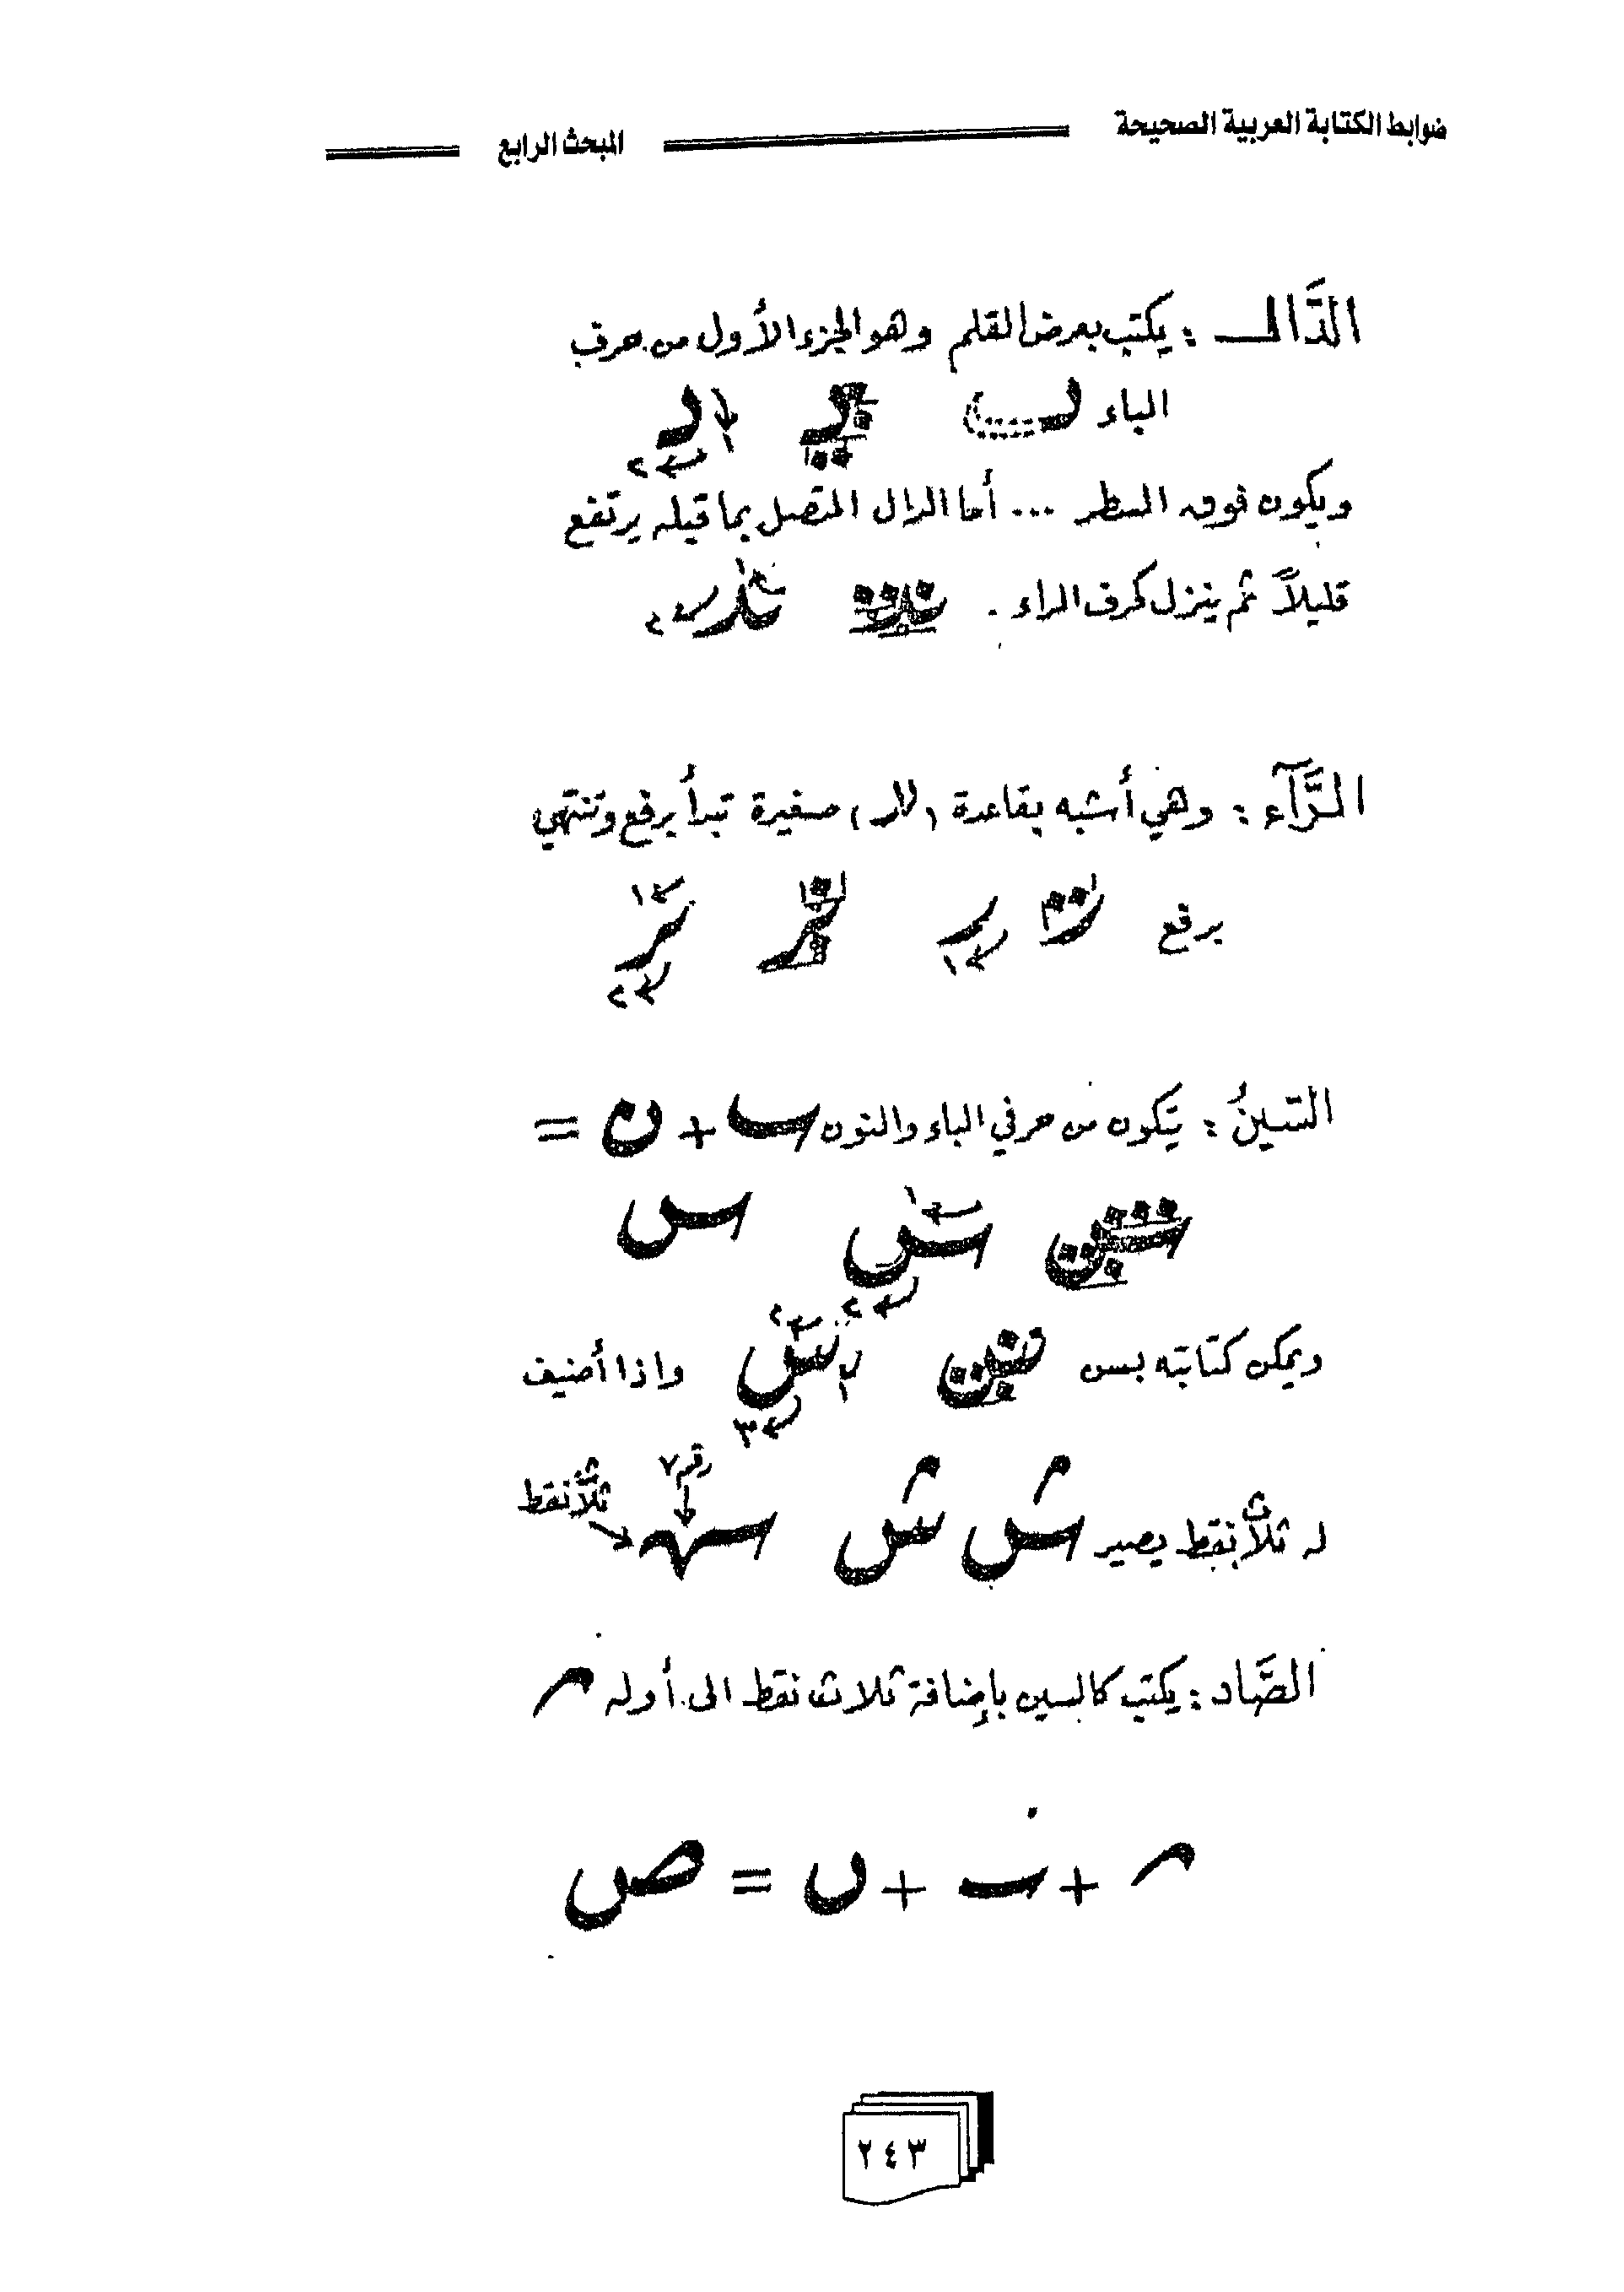 ضوابط الكتابة العربية الصحيحة المبحث الرابع
الدَّال : يكتب بعرض القلم وهو الجزء الأول من حرف
الباء
١
٢
ويكون فوق السطر ... أما الدال المتصل بما قبله يرتفع
قليلاً ثم ينزل كحرف الراء .
١
٢
الرَّآء : وهي أشبه بقاعدة (لا) صغيرة تبدأ برفع وتنتهي
برفع
١
١
٢
السّينُ : يتكون من حرفي الباء والنون ب + ن =
س
١
٢
ويمكن كتابته بسن س وإذا أضيف
١
٢
٣
له ثلاث نقط يصير
رقم ٧
ثلاث نقط
الصَّاد : يكتب كالسين بإضافة ثلاث نقط الى أوله
+ + ں = ص
٢٤٣